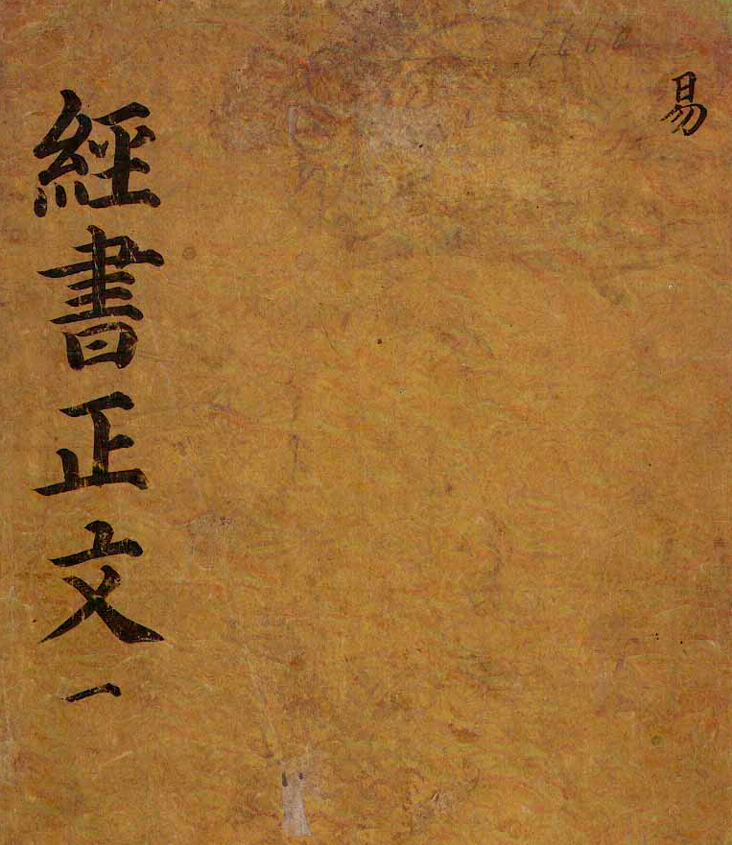 易
經書正文一